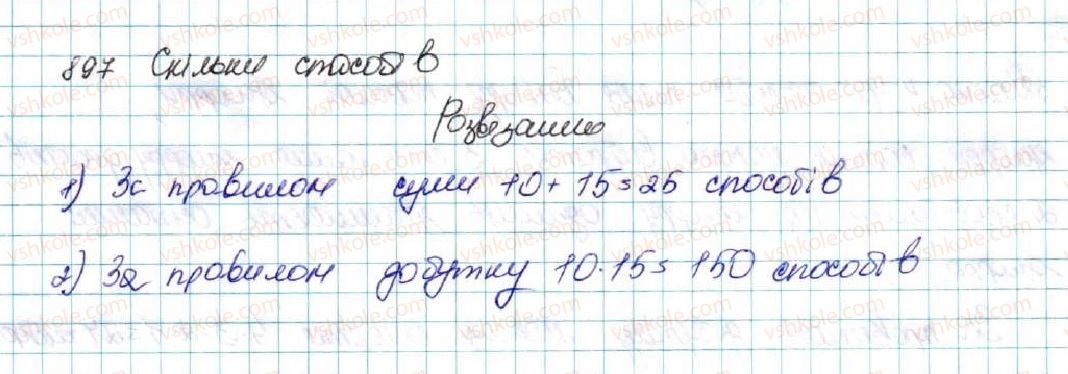 897 Скільки способів
Розвязання
1) За правилом суми 10 + 15 = 25 способів
2) За правилом добутку 10 · 15 = 150 способів